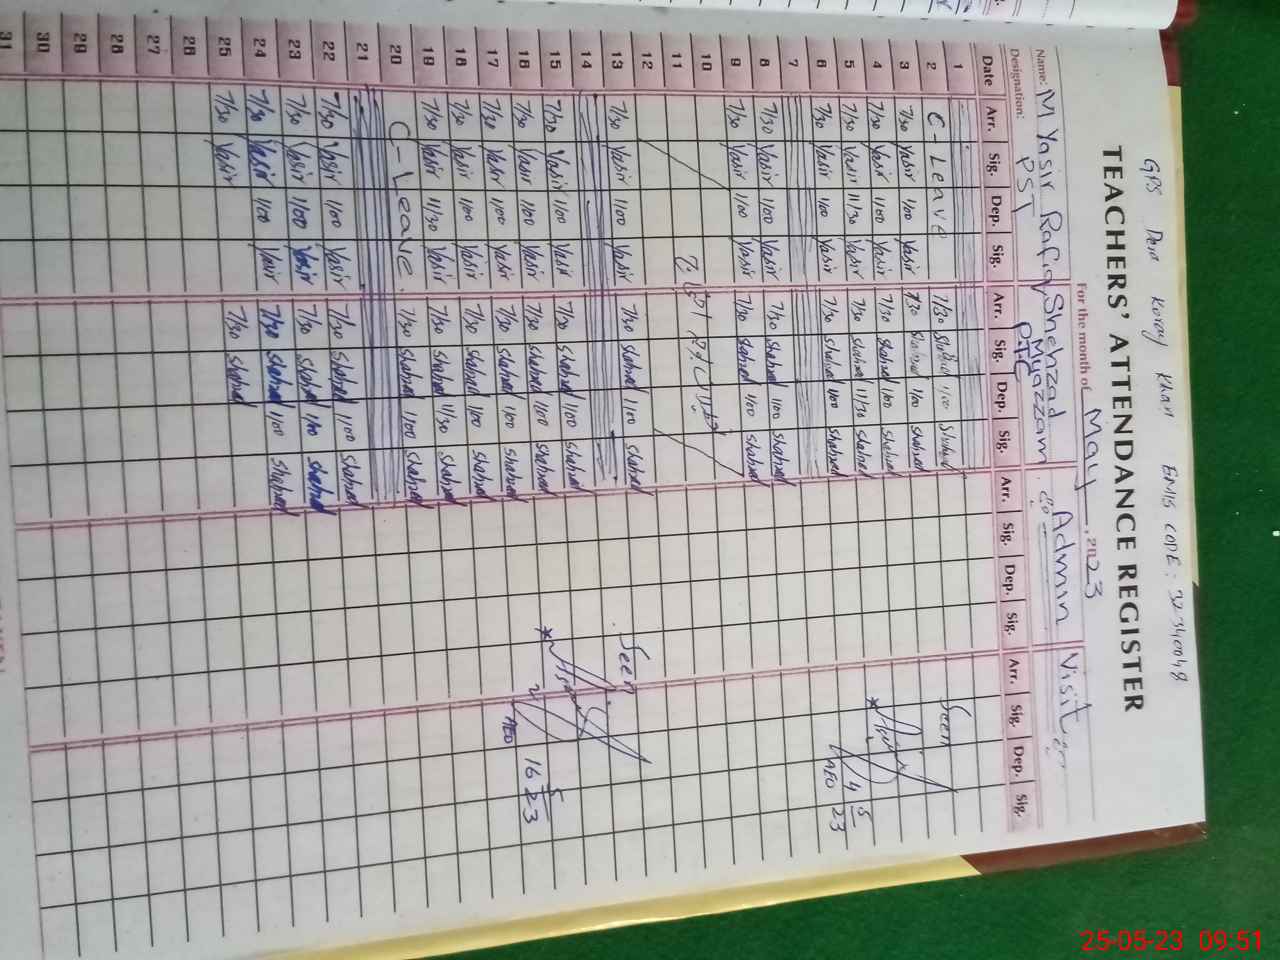 GPS Dera Koray Khan EMIS CODE: 32340048
TEACHERS' ATTENDANCE REGISTER
For the month of May, 2023
Name: M Yasir Rafiq Shehzad Muazzam Admin Visit
Designation: PST PTC
Date Arr. Sig. Dep. Sig. Arr. Sig. Dep. Sig. Arr. Sig. Dep. Sig. Arr. Sig. Dep. Sig.
1
2 C-Leave 7/30 Shahzad 1/00 Shahzad Seen
3 7/30 Yasir 1/00 Yasir 7/30 Shahzad 1/00 Shahzad
4 7/30 Yasir 1/00 Yasir 7/30 Shahzad 1/00 Shahzad
5 7/30 Yasir 11/30 Yasir 7/30 Shahzad 11/30 Shahzad 4 5 23
6 7/30 Yasir 1/00 Yasir 7/30 Shahzad 1/00 Shahzad AEO
7
8 7/30 Yasir 1/00 Yasir 7/30 Shahzad 1/00 Shahzad
9 7/30 Yasir 1/00 Yasir 7/30 Shahzad 1/00 Shahzad
10
11
12
13 7/30 Yasir 1/00 Yasir 7/30 Shahzad 1/00 Shahzad Seen
14
15 7/30 Yasir 1/00 Yasir 7/30 Shahzad 1/00 Shahzad
16 7/30 Yasir 1/00 Yasir 7/30 Shahzad 1/00 Shahzad 16 5 23
17 7/30 Yasir 1/00 Yasir 7/30 Shahzad 1/00 Shahzad AEO
18 7/30 Yasir 1/00 Yasir 7/30 Shahzad 1/00 Shahzad
19 7/30 Yasir 11/30 Yasir 7/30 Shahzad 11/30 Shahzad
20 C-Leave 7/30 Shahzad 1/00 Shahzad
21
22 7/30 Yasir 1/00 Yasir 7/30 Shahzad 1/00 Shahzad
23 7/30 Yasir 1/00 Yasir 7/30 Shahzad 1/00 Shahzad
24 7/30 Yasir 1/00 Yasir 7/30 Shahzad 1/00 Shahzad
25 7/30 Yasir 7/30 Shahzad
26
27
28
29
30
31
25-05-23 09:51